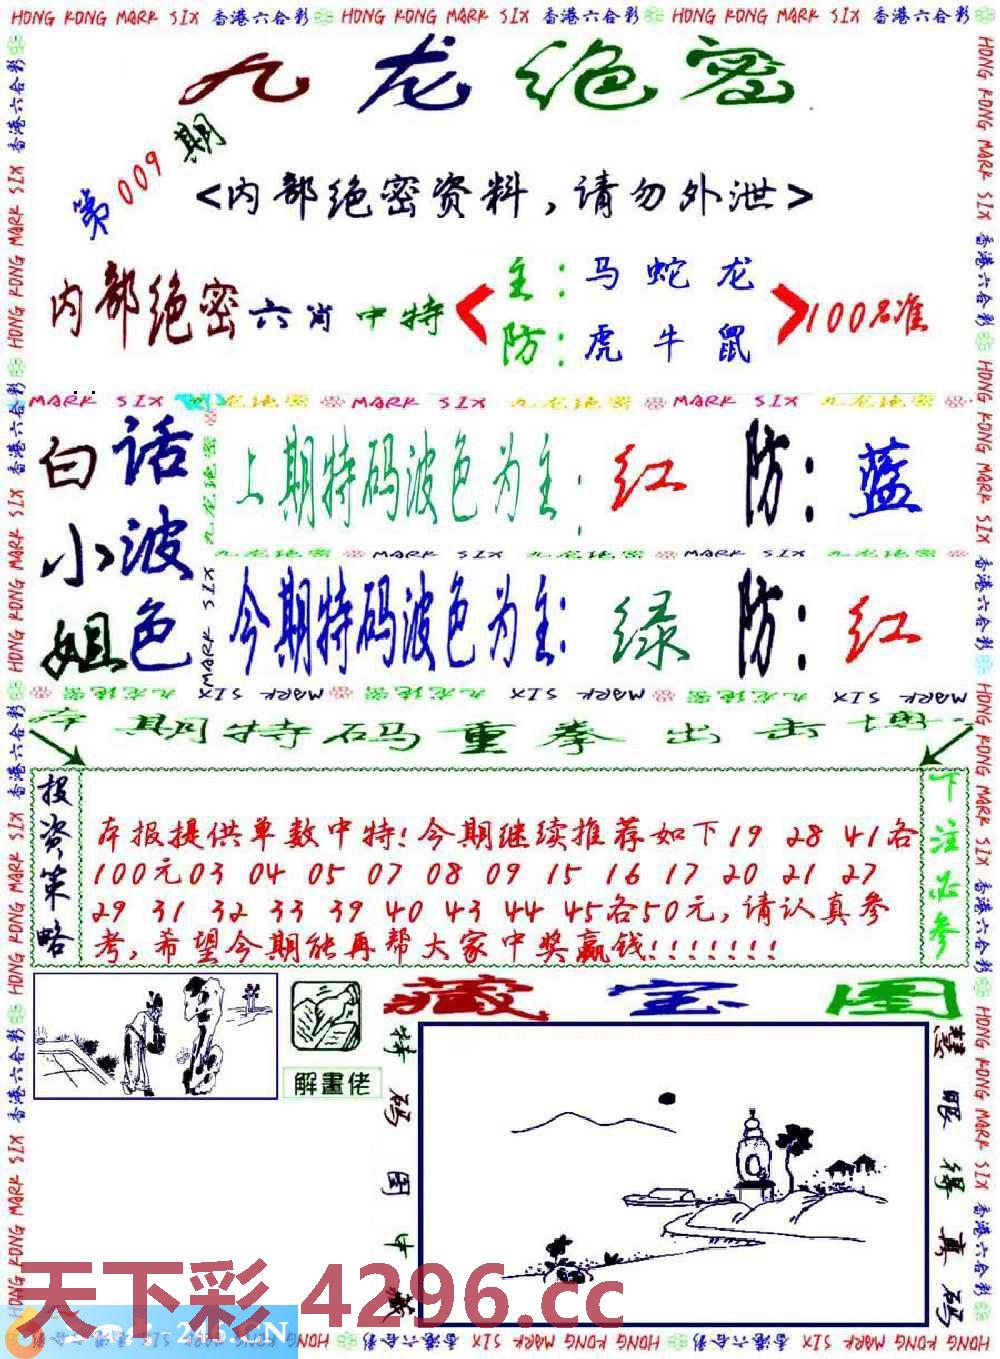 HONG KONG MARK SIX 香港六合彩 HONG KONG MARK SIX 香港六合彩 HONG KONG MARK SIX 香港六合彩
九龙绝密
第009期
<内部绝密资料,请勿外泄>
内部绝密六肖中特
主:马蛇龙
防:虎牛鼠
100%准
MARK SIX 九龙绝密 MARK SIX 九龙绝密 MARK SIX 九龙绝密
白小姐
话波色
上期特码波色为主:红 防:蓝
九龙绝密 MARK SIX 九龙绝密 MARK SIX 九龙绝密
今期特码波色为主:绿 防:红
本期特码重拳出击
投资策略
本报提供单数中特!今期继续推荐如下19 28 41各
100元03 04 05 07 08 09 15 16 17 20 21 27
29 31 32 33 39 40 43 44 45各50元,请认真参
考,希望今期能再帮大家中奖赢钱!!!!!!!
下注必参
解畫佬
藏宝图
特码图中藏
慧眼得真码
天下彩 4296.cc
246.CN